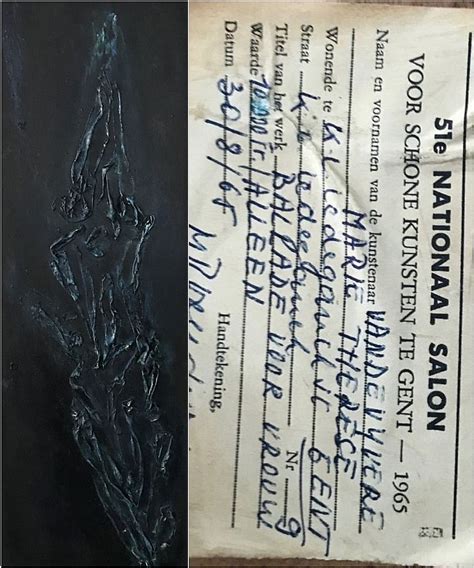 51e NATIONAAL SALON
VOOR SCHONE KUNSTEN TE GENT — 1965
Naam en voornamen van de kunstenaar VANDEVYVERE
MARIE THERESE
Wonende te GENT
Straat Nr 9
Titel van het werk BALLADE VOOR VROUW
Waarde 10.000 fr ALLEEN
Datum 30/8/65
Handtekening,